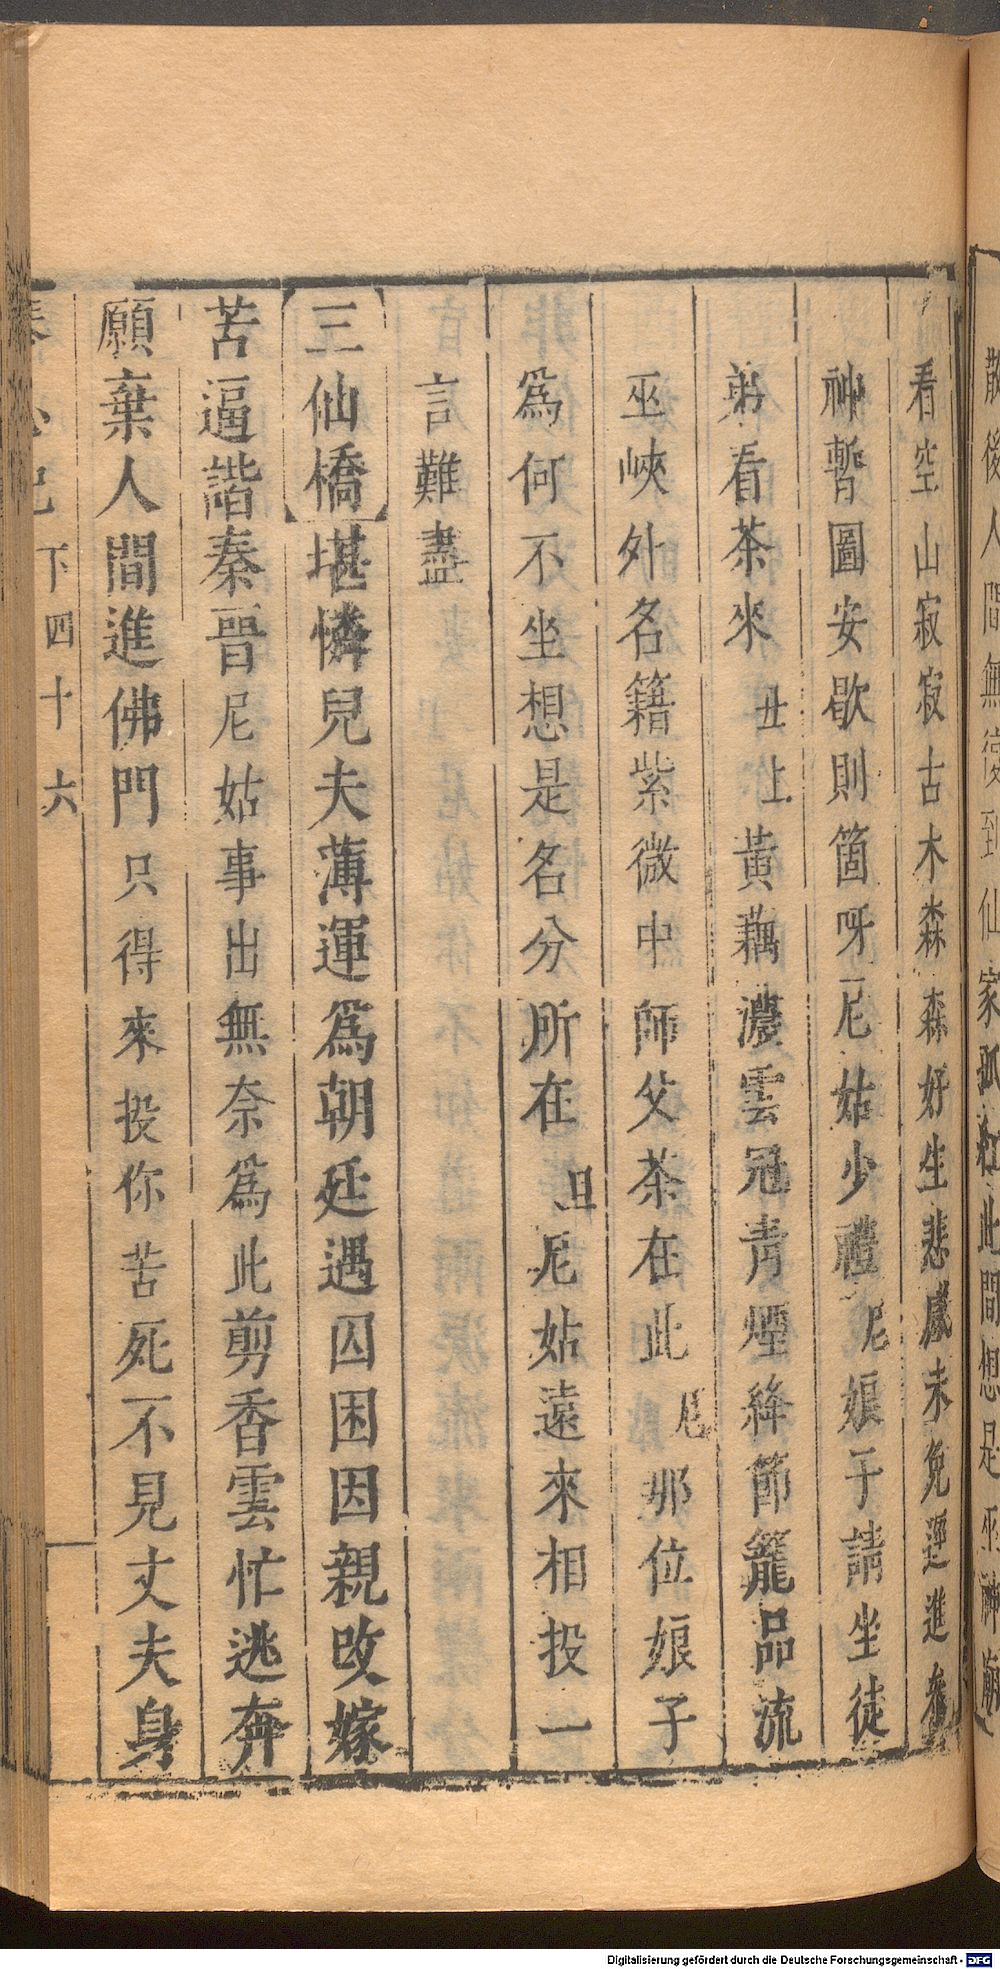 散後人間無復到仙家孤紅此間想是巫神廟
看空山寂寂古木森森好生悲感未免運進參
神暫圖安歇則箇呀尼姑少禮尼娘子請坐徒
弟看茶來丑上黃藕濃雲冠青煙絳節籠品流
巫峽外名籍紫微中師父茶在此尼那位娘子
爲何不坐想是名分所在旦尼姑遠來相投一
言難盡
三仙橋堪憐兒夫薄運爲朝廷遇囚困因親改嫁
苦逼諧秦晉尼姑事出無奈爲此剪香雲忙逃奔
願棄人間進佛門只得來投你苦死不見丈夫身
下四十六
Digitalisierung gefördert durch die Deutsche Forschungsgemeinschaft - DFG